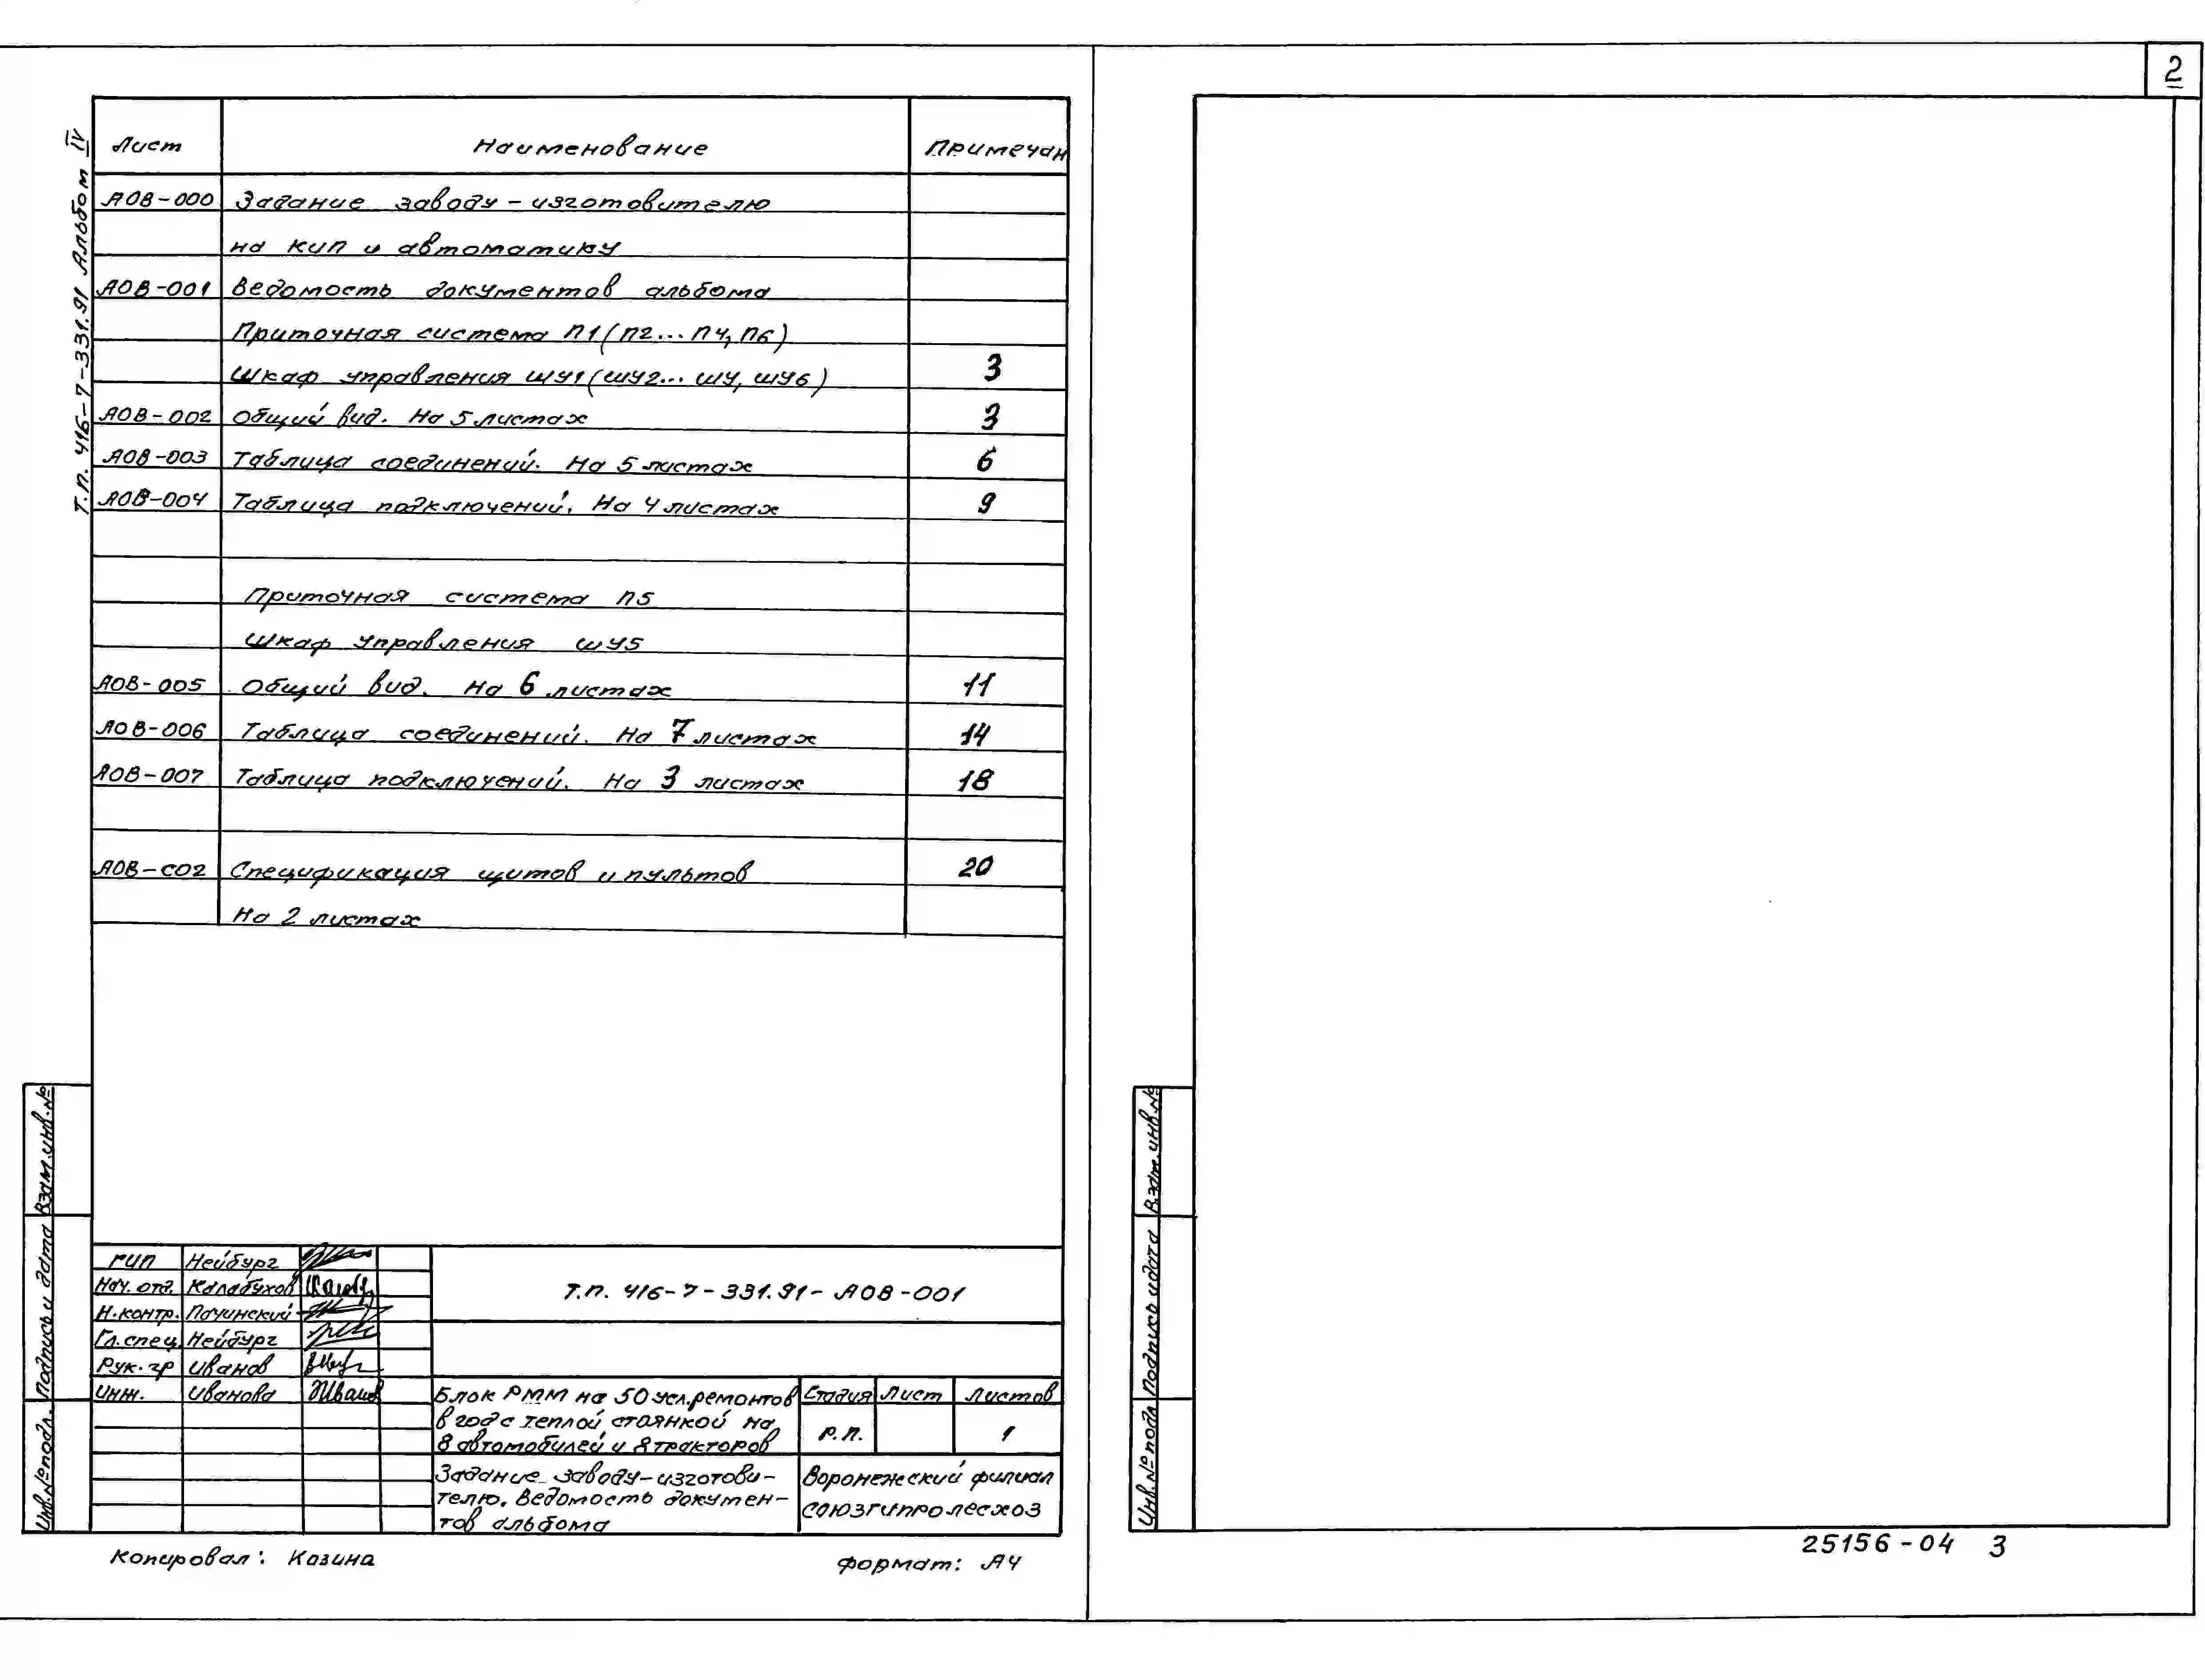 2
Т.п. 416-7-331.91 Альбом IV
Лист Наименование Примечан
АОВ-000 Задание заводу-изготовителю
на КИП и автоматику
АОВ-001 Ведомость документов альбома
Приточная система П1 (П2... П4, П6)
Шкаф управления ШУ1 (ШУ2... ШУ, ШУ6) 3
АОВ-002 Общий вид. На 5 листах 3
АОВ-003 Таблица соединений. На 5 листах 6
АОВ-004 Таблица подключений. На 4 листах 9
Приточная система П5
Шкаф управления ШУ5
АОВ-005 Общий вид. На 6 листах 11
АОВ-006 Таблица соединений. На 7 листах 14
АОВ-007 Таблица подключений. На 3 листах 18
АОВ-С02 Спецификация щитов и пультов 20
На 2 листах
Взам.инв.№
Подпись и дата
Инв.№подл.
ГИП Нейбург
Нач. отд. Калабухов
Н.контр. Пачинский
Гл.спец. Нейбург
Рук.гр Иванов
Инж. Иванова
Т.п. 416-7-331.91-АОВ-001
Блок РММ на 50 усл.ремонтов
в год с теплой стоянкой на
8 автомобилей и 8 тракторов
Стадия Лист Листов
Р.П. 1
Задание заводу-изготови-
телю. Ведомость докумен-
тов альбома
Воронежский филиал
Союзгипролесхоз
Копировал: Козина
Формат: А4
Взам.инв.№
Подпись и дата
Инв.№ подл
25156-04 3